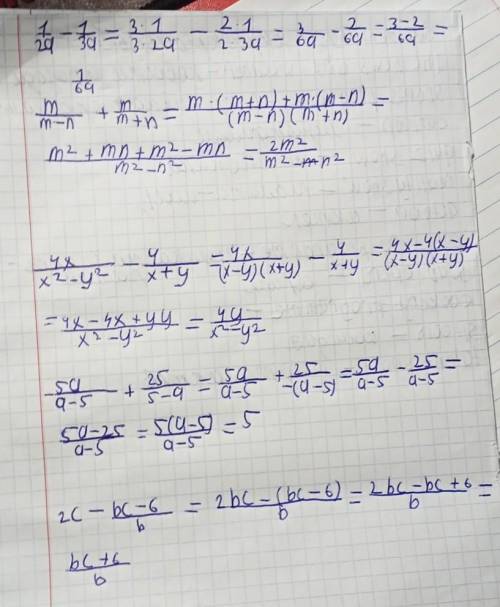 1/2a - 1/3a = 3·1/3·2a - 2·1/2·3a = 3/6a - 2/6a = 3-2/6a =
1/6a
m/m-n + m/m+n = m·(m+n)+m·(m-n)/(m-n)(m+n) =
m²+mn+m²-mn/m²-n² = 2m²/m²-n²
4x/x²-y² - 4/x+y = 4x/(x-y)(x+y) - 4/x+y = 4x-4(x-y)/(x-y)(x+y)
= 4x-4x+4y/x²-y² = 4y/x²-y²
5a/a-5 + 25/5-a = 5a/a-5 + 25/-(a-5) = 5a/a-5 - 25/a-5 =
5a-25/a-5 = 5(a-5)/a-5 = 5
2c - bc-6/b = 2bc-(bc-6)/b = 2bc-bc+6/b =
bc+6/b